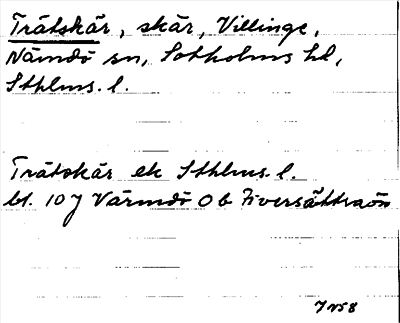 Trätskär, skär, Villinge,
Nämdö sn, Sotholms hd,
Sthlms. l.
Trätskär ek Sthlms l.
bl. 107 Värmdö Ob